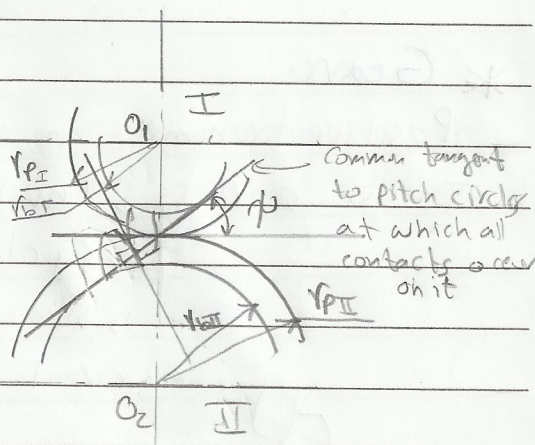 I
O1
rpI
rbI
Common tangent
to pitch circles
at which all
contacts occur
on it
ψ
rbII
rpII
O2
II